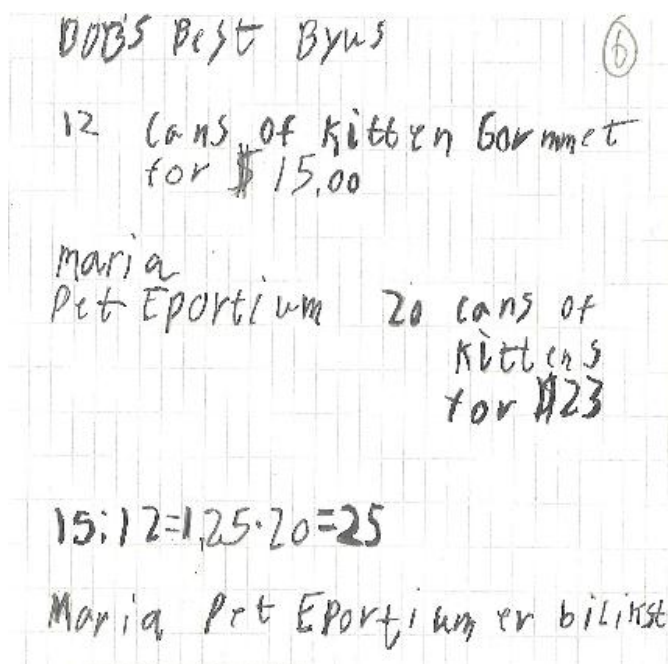 BOB'S Best Byus
6
12 Cans of Kitten Gormmet
for $ 15,00
maria
Pet Eportium 20 cans of
Kittens
for $23
15:12=1,25·20=25
Maria Pet EPortium er bilikst